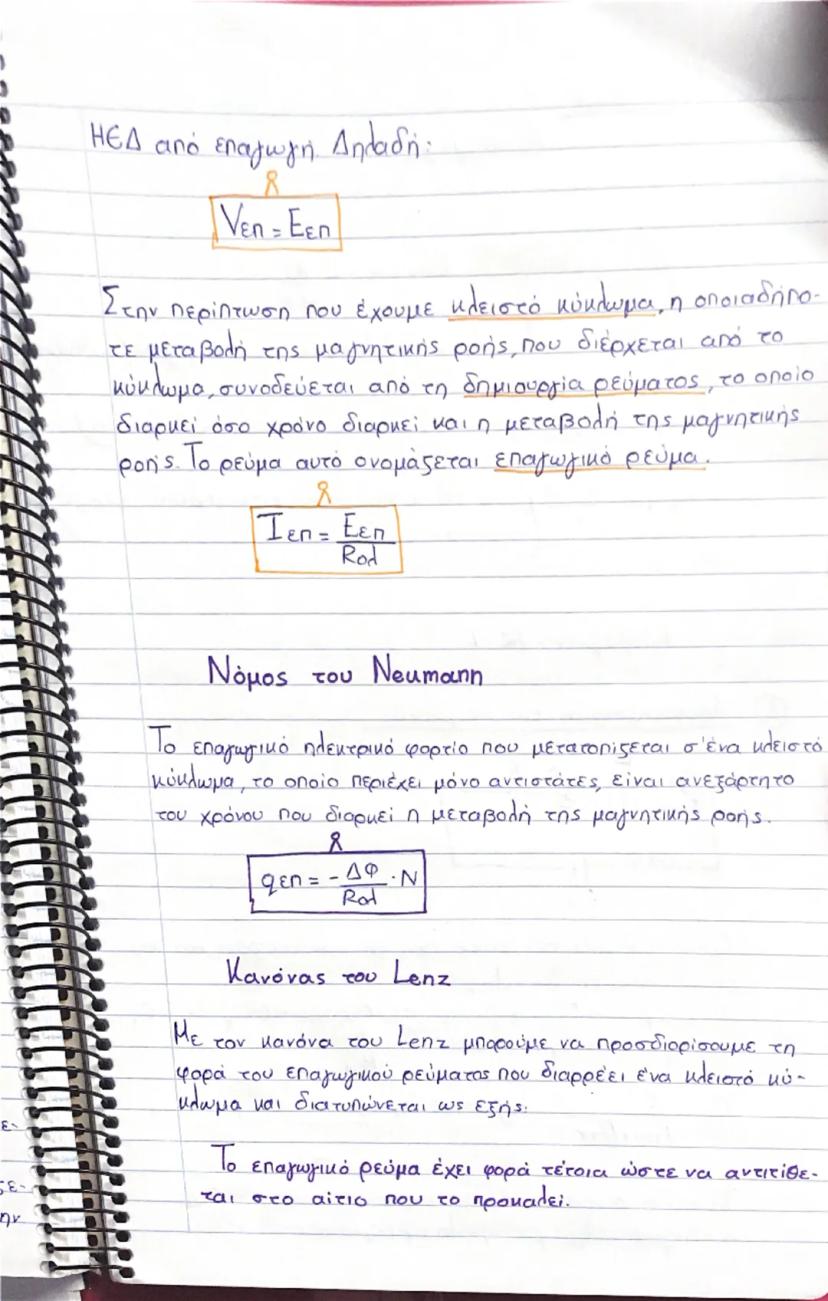 ΗΕΔ από επαγωγή. Δηλαδή:
Vεπ = Εεπ
Στην περίπτωση που έχουμε κλειστό κύκλωμα, η οποιαδήπο-
τε μεταβολή της μαγνητικής ροής, που διέρχεται από το
κύκλωμα, συνοδεύεται από τη δημιουργία ρεύματος, το οποίο
διαρκεί όσο χρόνο διαρκεί και η μεταβολή της μαγνητικής
ροής. Το ρεύμα αυτό ονομάζεται επαγωγικό ρεύμα.
Ιεπ = Εεπ / Rολ
Νόμος του Neumann
Το επαγωγικό ηλεκτρικό φορτίο που μετατοπίζεται σ'ένα κλειστό
κύκλωμα, το οποίο περιέχει μόνο αντιστάτες, είναι ανεξάρτητο
του χρόνου που διαρκεί η μεταβολή της μαγνητικής ροής.
qεπ = - ΔΦ / Rολ · N
Κανόνας του Lenz
Με τον κανόνα του Lenz μπορούμε να προσδιορίσουμε τη
φορά του επαγωγικού ρεύματος που διαρρέει ένα κλειστό κύ-
κλωμα και διατυπώνεται ως εξής:
Το επαγωγικό ρεύμα έχει φορά τέτοια ώστε να αντιτίθε-
ται στο αίτιο που το προκαλεί.